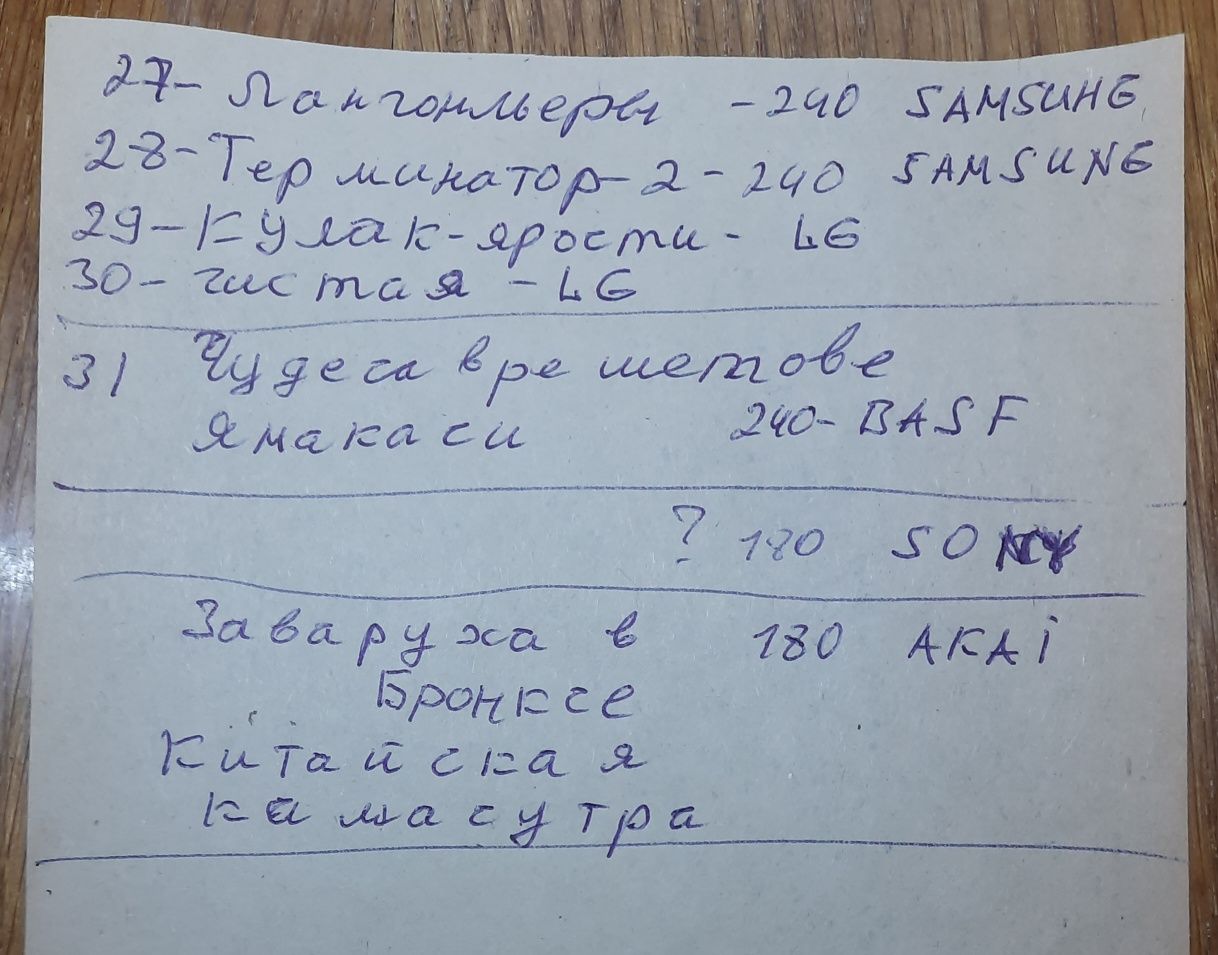 27- Лангольеры - 240 SAMSUNG
28- Терминатор-2-240 SAMSUNG
29- Кулак-ярости- LG
30- чистая - LG
31 Чудеса в решетове
Ямакаси 240- BASF
? 180 SONY
Заваруха в 180 AKAi
Бронксе
Китайская
камасутра